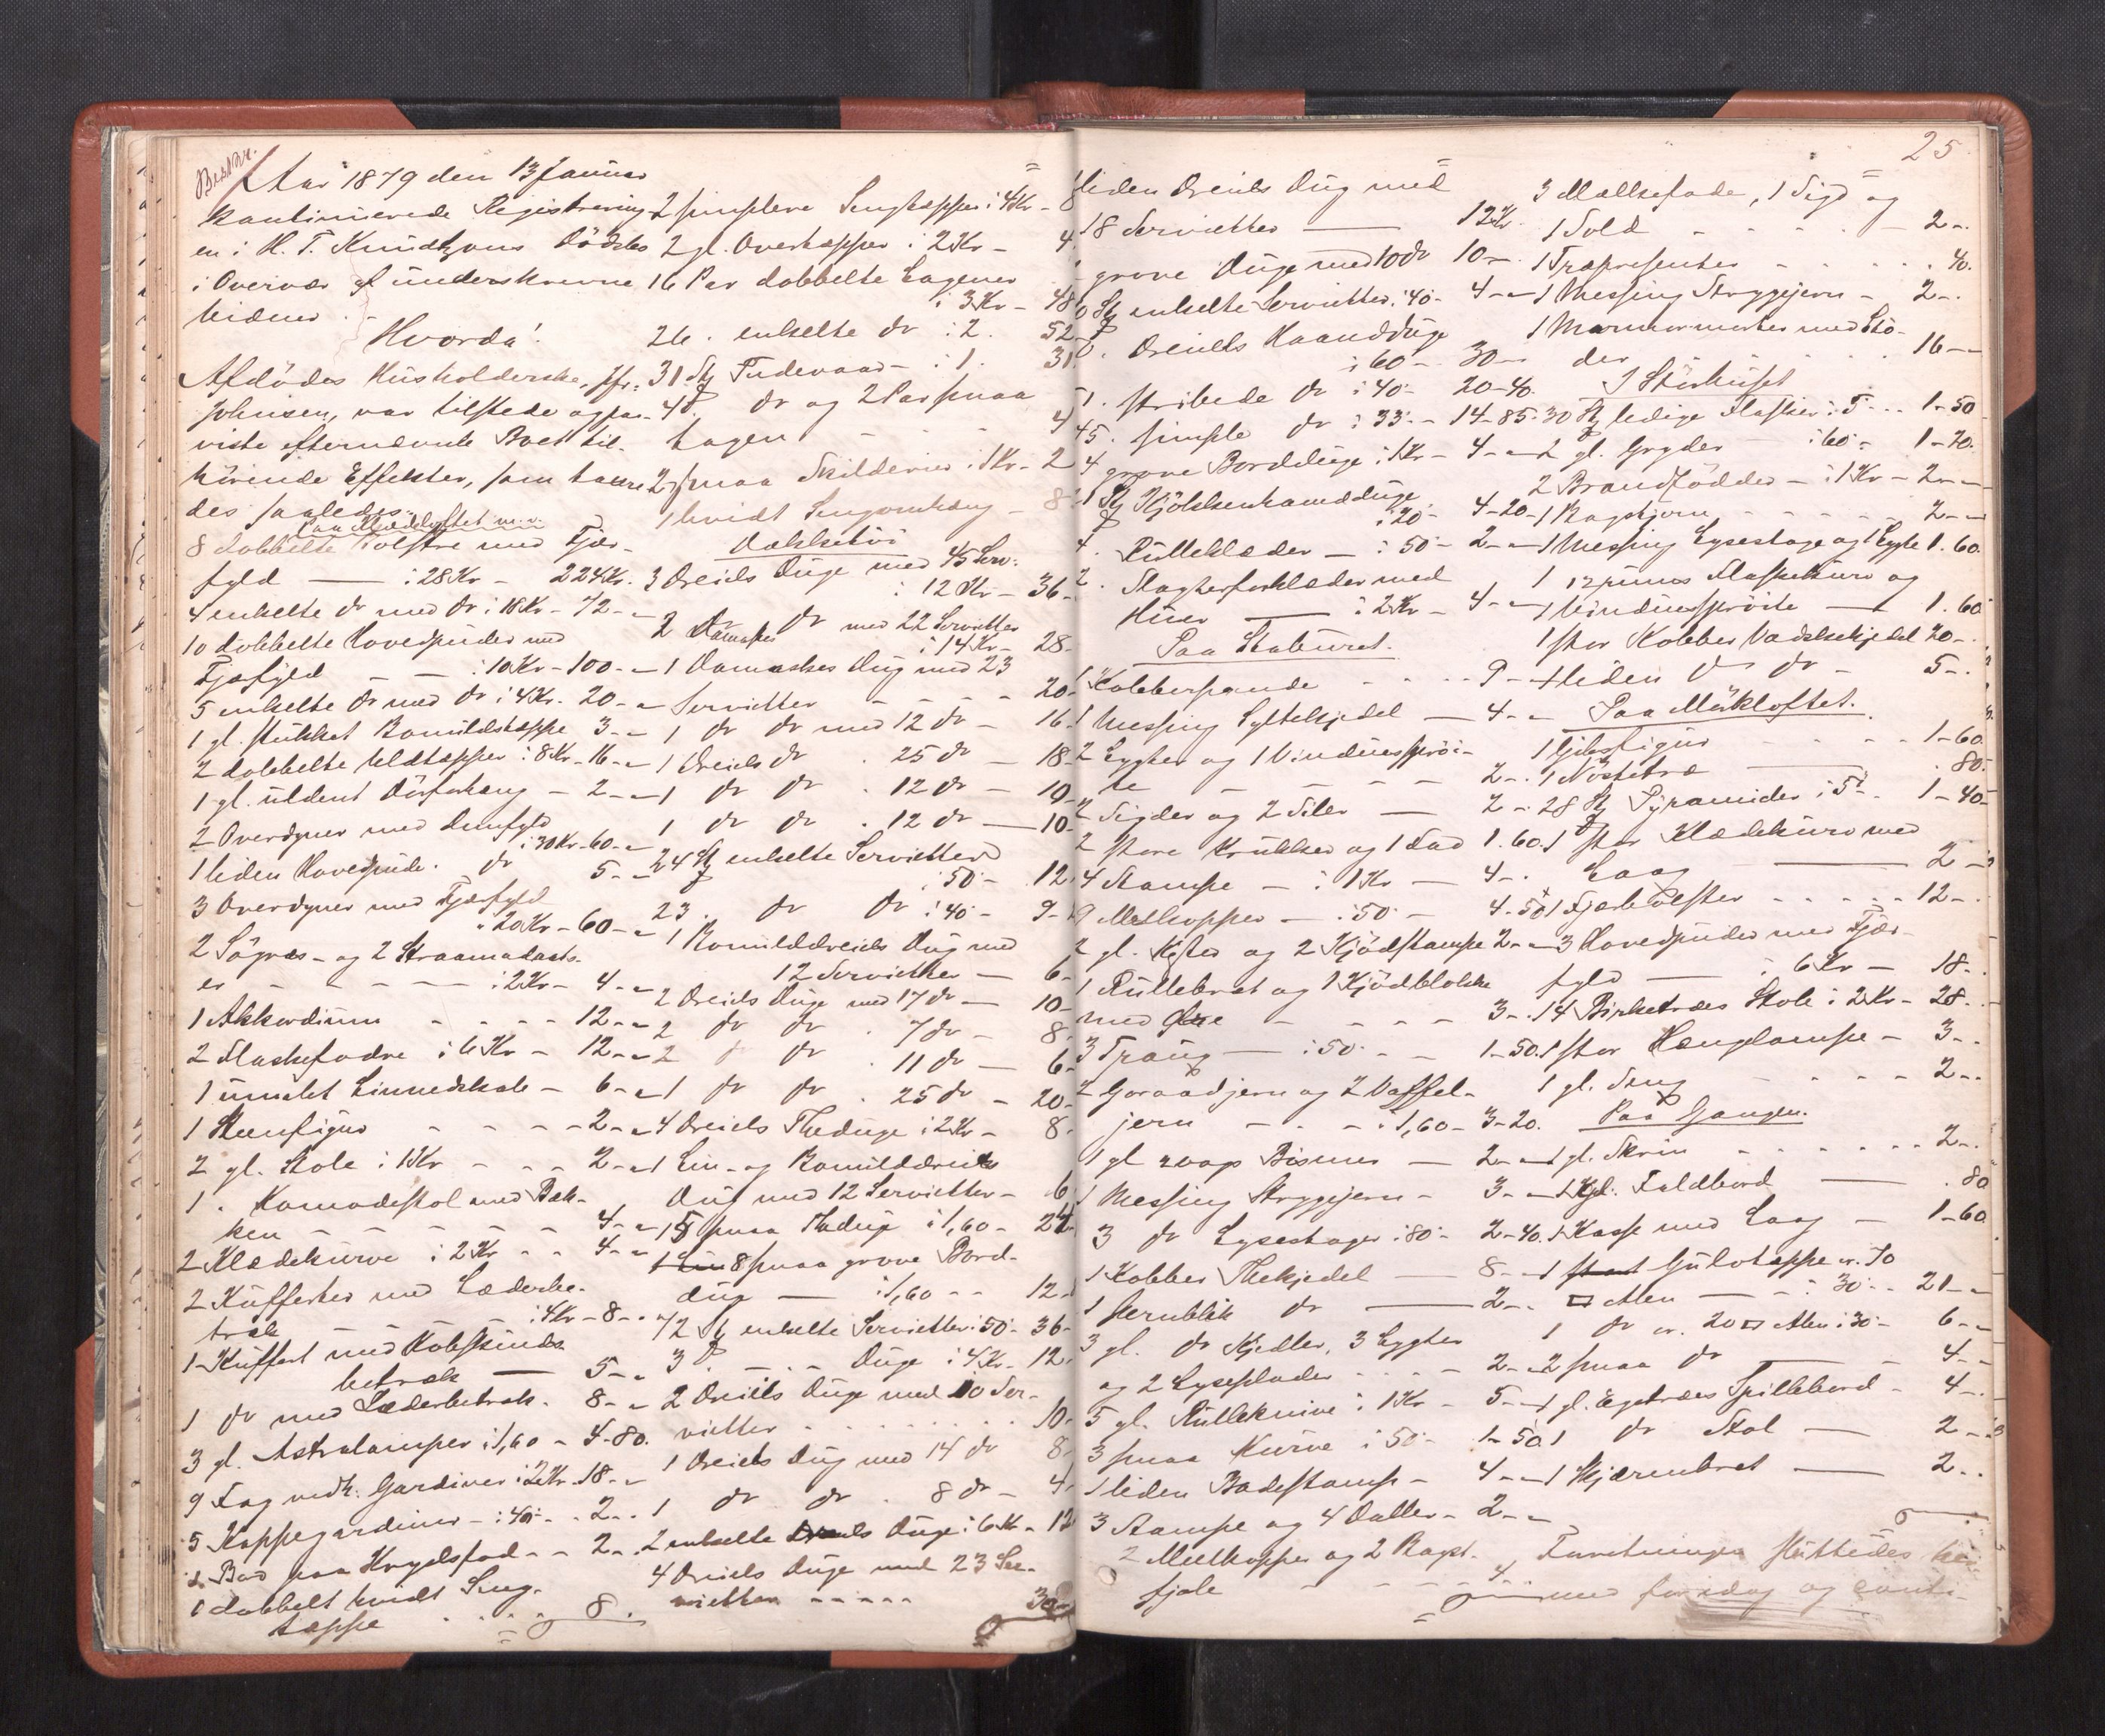 Best Nr.
Aar 1879 den 13 Januar
kontinuerede Registrering-
en i H. T. Knudtzons Dödsbo
i Overvær af underskrevne
Vidner. -
Hvorda!
Afdödes Husholderske, Jfr.
Johnsen, var tilstede og paa-
viste efternævnte Boet til-
hörende Effekter, som taxere-
des saaledes:
Paa Mörkloftet m.v.
8 dobbelte Bolstre med Fjær-
fyld — : 28 Kr - 224 Kr.
4 enkelte do med do : 18 Kr - 72 - -
10 dobbelte Hovedpuder med
Fjærfyld - - : 10 Kr - 100 - -
5 enkelte do med do : 4 Kr. 20 - -
1 gl. stukket Bomuldstæppe 3 - -
2 dobbelte Uldtæpper : 8 Kr - 16 - -
1 gl. uldent Dörforhæng - 2 - -
2 Overdyner med Dunfyld
: 30 Kr - 60 - -
1 liden Hovedpude . do 5 - -
3 Overdyner med Fjærfyld
: 20 Kr - 60 - -
2 Sögræs- og 2 Straamadrats-
er - - - - : 2 Kr - 4 - -
1 Akkordium - - - - 12 - -
2 Flaskefodre : 6 Kr - 12 - -
1 umalet Linnedskab - 6 - -
1 Steenfigur - - - - 2 - -
2 gl. Stole : 1 Kr - - - 2 - -
1 . Komodestol med Bæk-
ken - - - - - - 4 - -
2 Klædekurve : 2 Kr - - 4 - -
2 Kufferter med Læderbe-
træk - - - : 4 Kr - 8 - -
1 Kuffert med Kobskinds-
betræk — 5 - -
1 do med Læderbetræk. 8 - -
3 gl. Astralamper : 1,60 - 4-80.
9 Fag Gardiner : 2 Kr 18 - -
5 Kappegardiner - : 40 - - 2 - -
- - 2 - -
1 dobbelt hvidt Seng-
tæppe - - - - 8.
2 simplere Sengtæpper : 4 Kr - 8
2 gl. Overtæpper : 2 Kr - 4.
16 Par dobbelte Lagener
: 3 Kr - 48
26 . enkelte do : 2. 52
31 Stk Pudevaar - : 1. 31.
4 . do og 2 Par smaa
Lagen - - - 4
2 smaa Skilderier : 1 Kr - 2
1 hvidt Sengomhæng - 8.
Dækketöi
3 Dreiels Duge med 45 Serv.
: 12 Kr - 36 -
2 Damaskes do med 22 Servietter
: 14 Kr - 28 -
1 Damaskes Dug med 23
Servietter - - - - 20 -
1 do do med 12 do - 16.
1 Dreiels do . 25 do — 18 -
1 do do . 12 do — 10 -
1 do do . 12 do — 10 -
24 Stk enkelte Servietter
: 50 - 12.
23 . do do : 40 - 9 -
1 Bomulddreiels Dug med
12 Servietter — 6 -
2 Dreiels Duge med 17 do — 10 -
2 do do . 7 do - 8.
2 do do . 11 do — 6 -
1 do do . 25 do - 20 -
4 Dreiels Theduge : 2 Kr - 8.
1 Lin- og Bomulddreiels
Dug med 12 Servietter - 6
15 smaa Thedug : 1,60 - 24 -
8 smaa grove Bord-
duge — : 1,60 - - 12.
72 Stk enkelte Servietter : 50 - 36 -
3 . — . - Duge : 4 Kr - 12.
2 Dreiels Duge med 10 Ser-
vietter . . . . . . 10 -
1 Dreiels Dug med 14 do 8.
1 do do . 8 do - 4.
2 enkelte Dreiels Duge : 6 Kr - 12
4 Dreiels Duge med 23 Ser-
vietter - - - - - 30 -
25
1 liden Dreiels Dug med
18 Servietter — 12 Kr.
grove Duge med 10 do 10 - -
Stk enkelte Servietter : 40 - 4 - -
. Dreiels Haandduge
: 60 - 30 - -
51 . stribede do : 40 - 20-40.
45 . simple do : 33 - - 14-85.
4 grove Bordduge : 1 Kr - 4 - -
21 Stk Kjökkenhaandduge
: 20 - 4-20 -
4 . Rulleklæder — : 50 - 2 - -
2 . Slagterforklæder med
Huer — : 2 Kr - 4 - -
Paa Staburet.
1 Kobberpande - - - - 9 - -
1 Messing Syltekjedel — 4 - -
2 Lygter og 1 Vinduesspröi-
te - - - - - - 2 - .
2 Sigder og 2 Siler — 2 - .
2 store Krukker og 1 Fad 1.60.
4 Stampe — : 1 Kr — 4 - .
9 Melkopper — : 50 - 4.50
2 gl. Kister og 2 Kjödstampe 2 - -
1 Rullebret og 1 Kjödblokke
med Öxe - - - - 3 - .
3 Traug — : 50 - - 1-50.
2 Goraadjern og 2 Vaffel-
jern - - - : 1,60 - 3-20.
1 gl. 2vogs Bismer — 2 - -
1 Messing Strygejern - 3 - -
3 do Lysestager : 80 - 2-40.
1 Kobber Thekjedel — 8 - -
1 Jernblik do — 2 - .
3 gl. do Kjedler, 3 Lygter
og 2 Lyseplader - - - - 2 - -
5 gl. Rulleknive : 1 Kr - 5 - -
3 smaa Kurve : 50 - 1-50.
1 liden Badestamp - 4 - -
3 Stampe og 4 Daller - 2 - -
2 Melkopper og 2 Bagst-
fjæle - - - - 4
3 Mælkefade, 1 Sigd og
1 Sold - - - - - 2 - .
1 Træpresenter - - - - - 40.
1 Messing Strygejern - 2 - .
1 Marmormorter med Stö-
der - - - - 16 - -
I Störhuset
30 Stk ledige Flasker : 5 - - 1-50
2 gl. Gryder : 60 - 1-20.
2 Brandfödder - : 1 Kr - 2 - -
1 Bagstjern - - - - - 2 - -
1 Messing Lysestage og 1 Lygte 1.60.
1 12 rums Flaskekurv og
1 Vinduesspröite — 1.60
1 stor Kobber Vadskekjedel 20 - .
1 liden do do - 5 - .
Paa Mörkloftet.
1 Gibsfigur - - - - 1-60
1 Nöstetræ — . 80.
28 Stk Pyramider : 5 - . 1-40
1 stor Klædekurv med
Laag — 2 -
1 Fjærbolster - - - - - 12 - .
3 Hovedpuder med Fjær-
fyld — : 6 Kr — 18 - .
14 Birketræes Stole : 2 Kr - 28.
1 stor Hænglampe - 3 - .
1 gl. Seng - - - - 2 - .
Paa Gangen.
1 gl. Skrin - - - - - - 2 - .
1 gl. Foldbord — . 80
1 Kasse med Laag — 1-60.
1 Gulvtæppe cr. 70
□ Alen — - : 30 - - 21 - -
1 do cr. 20 □ Alen : 30 - 6 - -
2 smaa do — - 4 - -
1 gl. Egetræes Spillebord - 4 - .
1 do Stol — 2 -
1 Skjærmbret — 2 - .
Forretningen sluttedes her-
med for idag og conti-